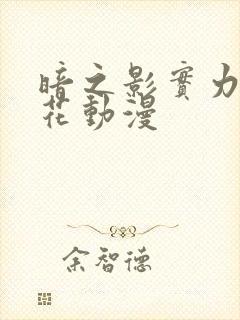 暗之影實力
花動漫
余智德